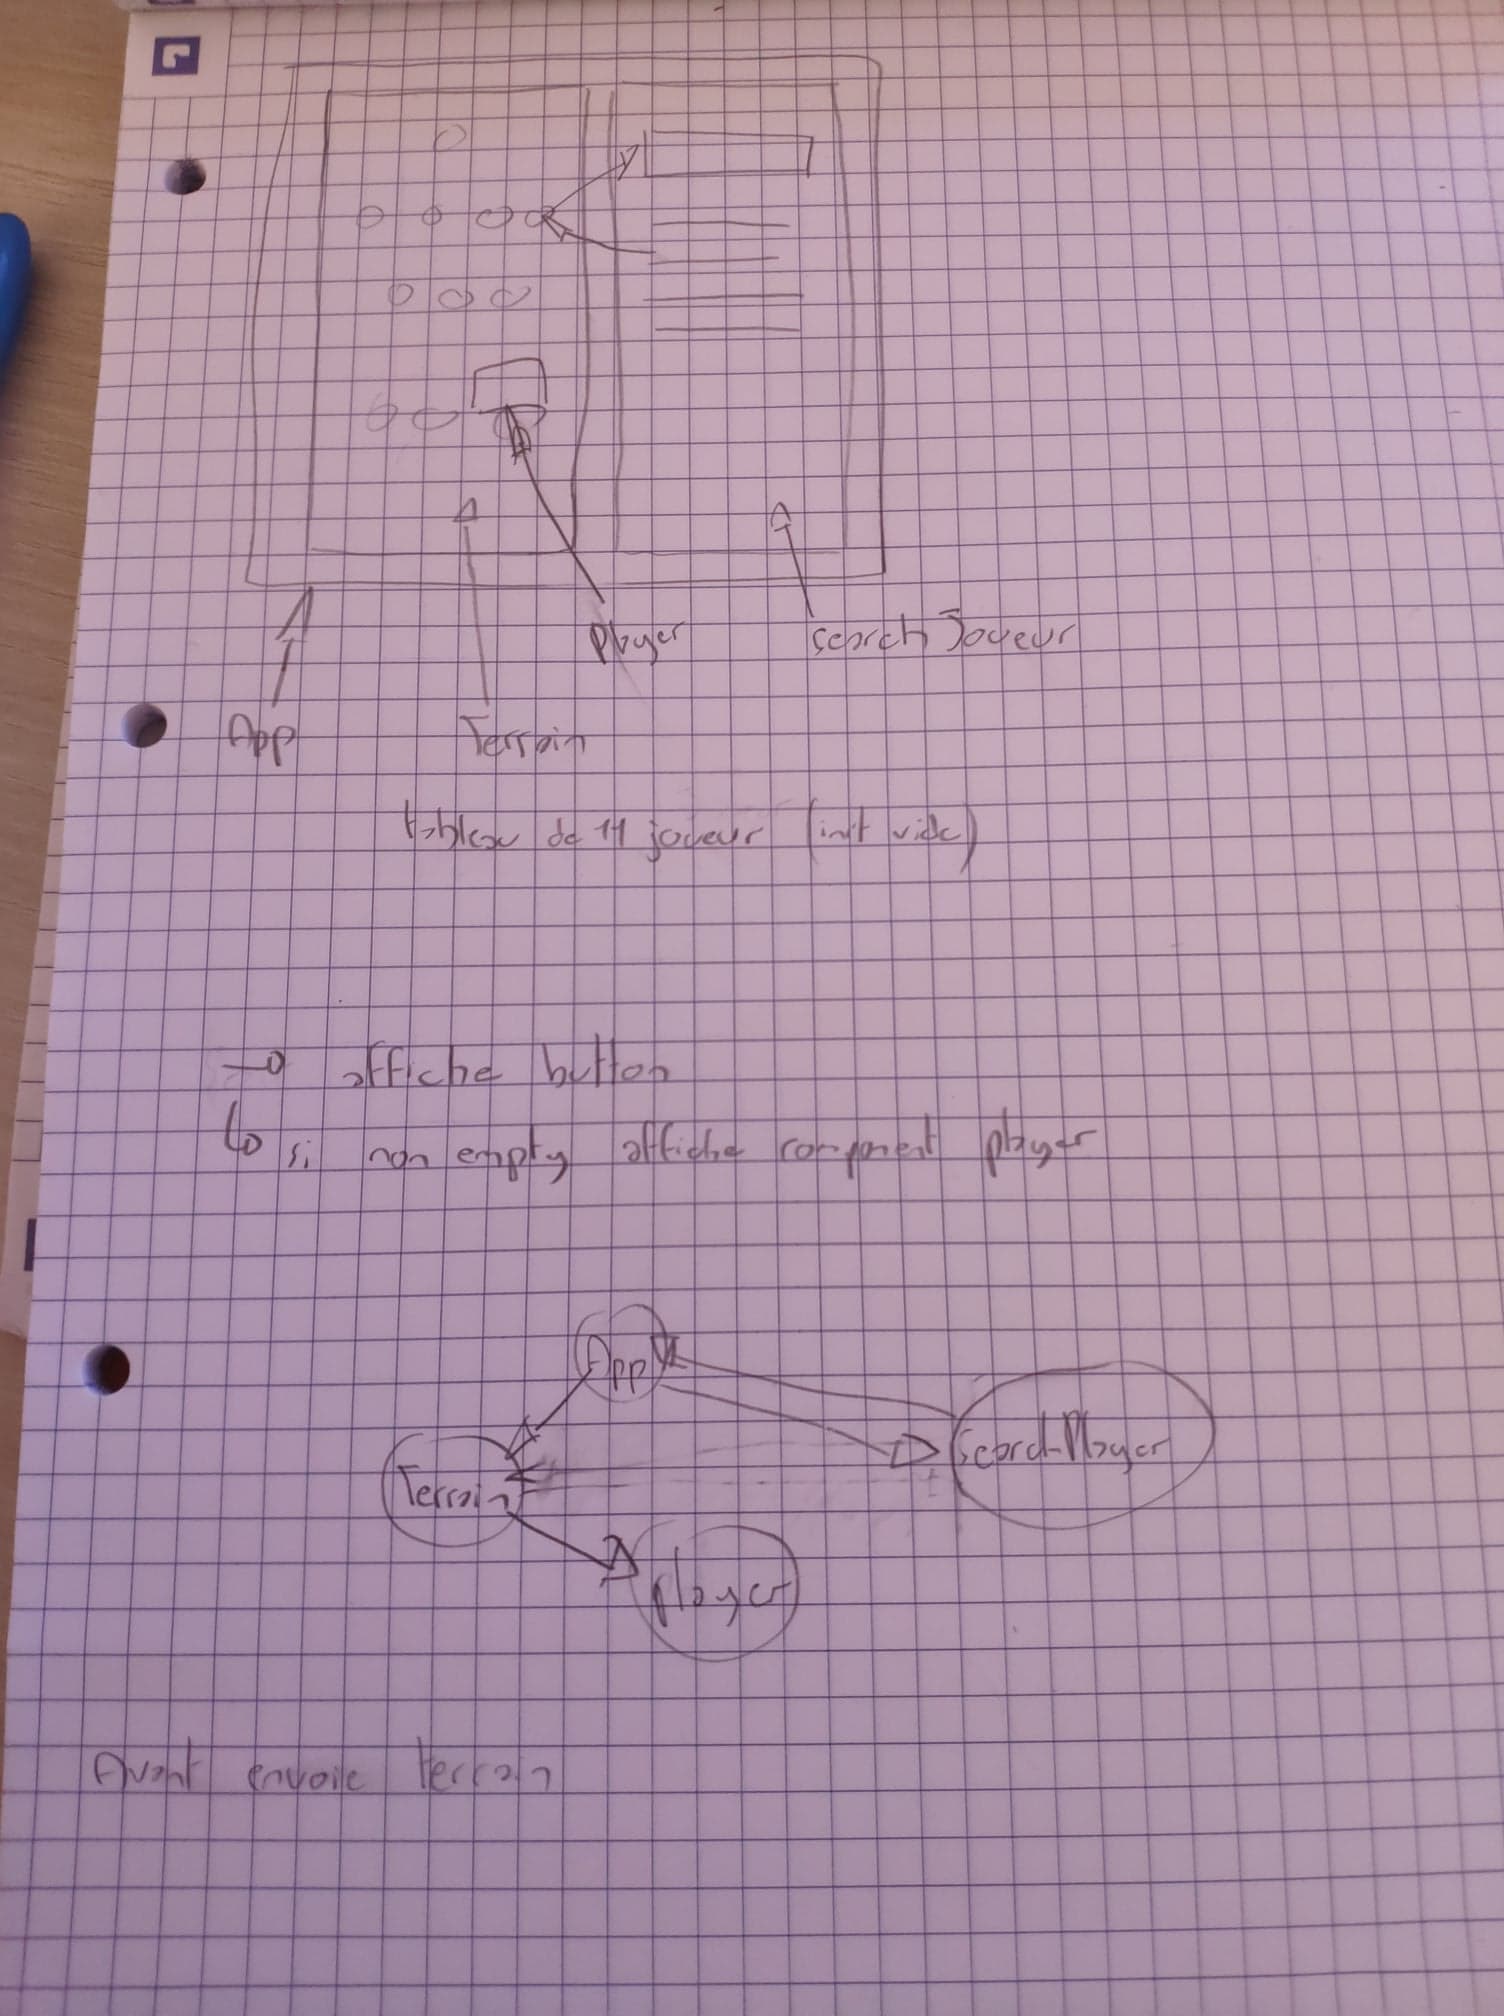 Player
search Joueur
App
Terrain
tableau de 11 joueur (init vide)
→ affiche button
↳ si non empty affiche component player
App
Search Player
Terrain
player
Avant envoie terrain